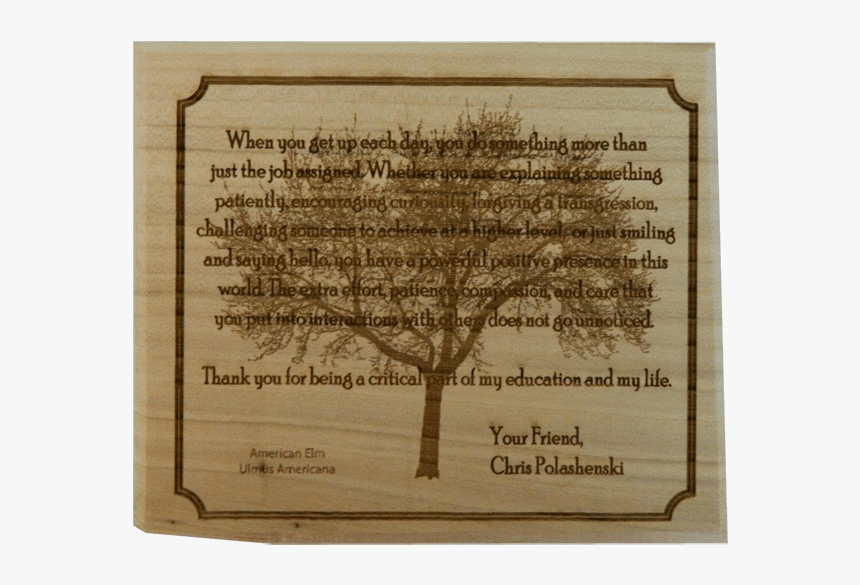 When you get up each day, you do something more than
just the job assigned. Whether you are explaining something
patiently, encouraging curiousity, forgiving a transgression,
challenging someone to achieve at a higher level, or just smiling
and saying hello, you have a powerful positive presence in this
world. The extra effort, patience, compassion, and care that
you put into interactions with others does not go unnoticed.
Thank you for being a critical part of my education and my life.
Your Friend,
Chris Polashenski
American Elm
Ulmus Americana